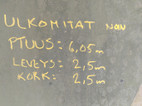 ULKOMITAT NOIN
PTUUS: 6,05m
LEVEYS: 2,5m
KORK: 2,5m